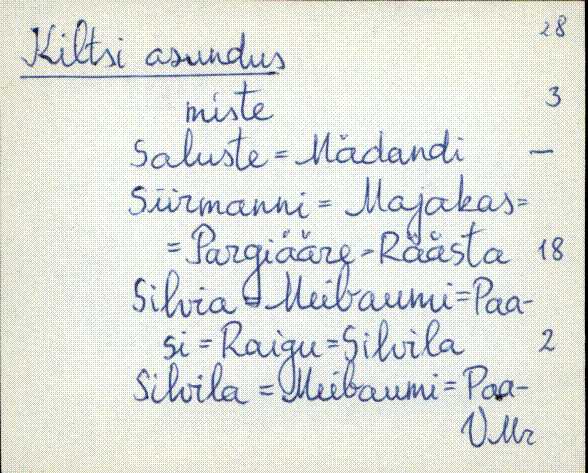 28
Kiltsi asundus
miste 3
Saluste = Mädandi —
Siirmanni = Majakas=
= Pargiääre - Räästa 18
Silvia = Meibaumi = Paa-
si = Raigu = Silvila 2
Silvila = Meibaumi = Paa-
VMr